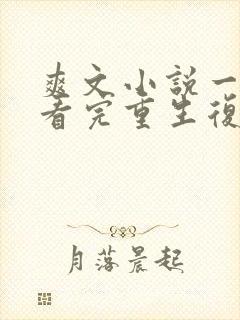 爽文小説一
看完重生復
月落晨起